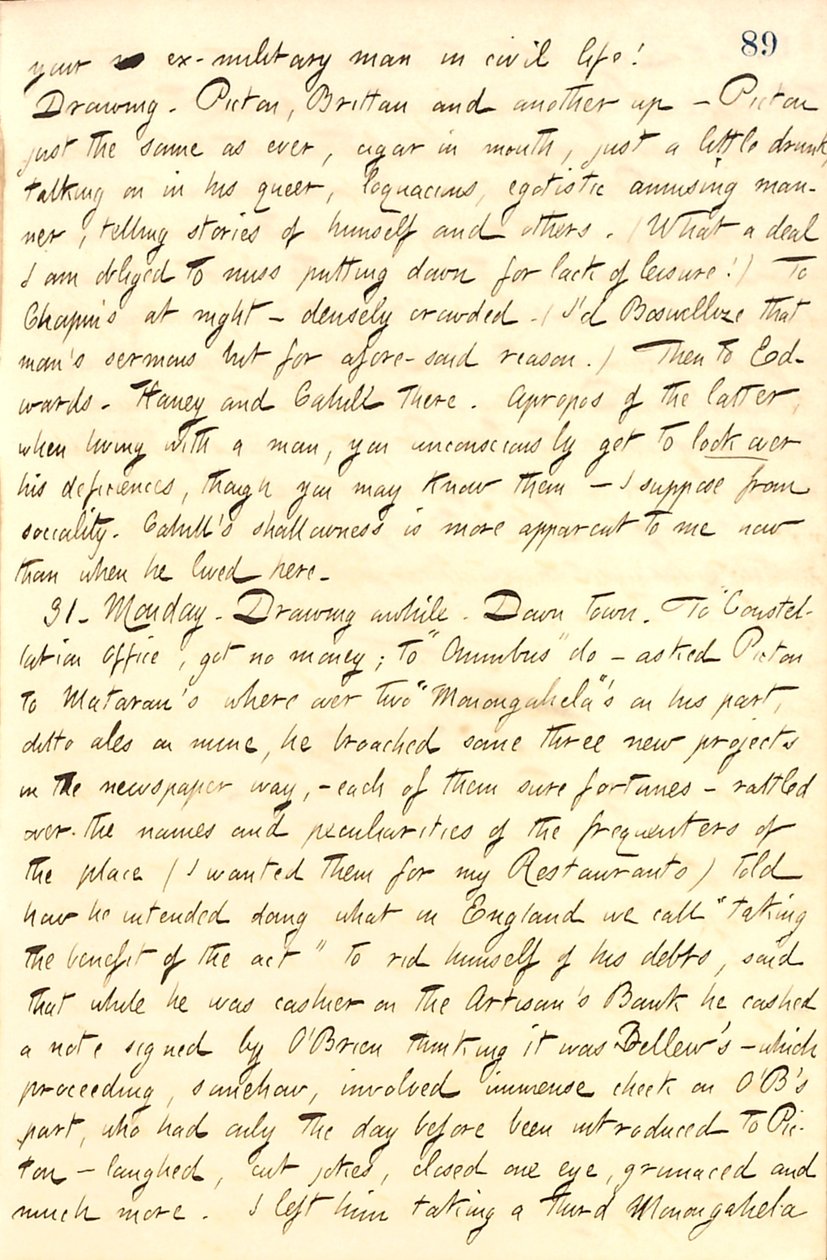 89
your ex-military man in civil life!
Drawing. Picton, Brittan and another up — Picton
just the same as ever, cigar in mouth, just a little drunk,
talking on in his queer, loquacious, egotistic amusing man-
ner, telling stories of himself and others. (What a deal
I am obliged to miss putting down for lack of leisure!) To
Chapin's at night — densely crowded. (I'd Boswellize that
man's sermons but for afore-said reason.) Then to Ed-
wards. Haney and Cahill there. Apropos of the latter,
when living with a man, you unconsciously get to look over
his deficiences, though you may know them — I suppose from
sociality. Cahill's shallowness is more apparent to me now
than when he lived here.
31. Monday. Drawing awhile. Down town. To "Constel-
lation office, got no money; to "Omnibus" do — asked Picton
to Mataran's where over two "Monongahela"'s on his part,
ditto ales on mine, he broached some three new projects
in the newspaper way, — each of them sure fortunes — rattled
over the names and peculiarities of the frequenters of
the place (I wanted them for my Restaurants) told
how he intended doing what in England we call "taking
the benefit of the act" to rid himself of his debts, said
that while he was cashier on the Artisan's Bank he cashed
a note signed by O'Brien thinking it was Bellew's — which
proceeding, somehow, involved immense cheek on O'B's
part, who had only the day before been introduced to Pic-
ton — laughed, cut jokes, closed one eye, grimaced and
much more. I left him taking a third Monongahela